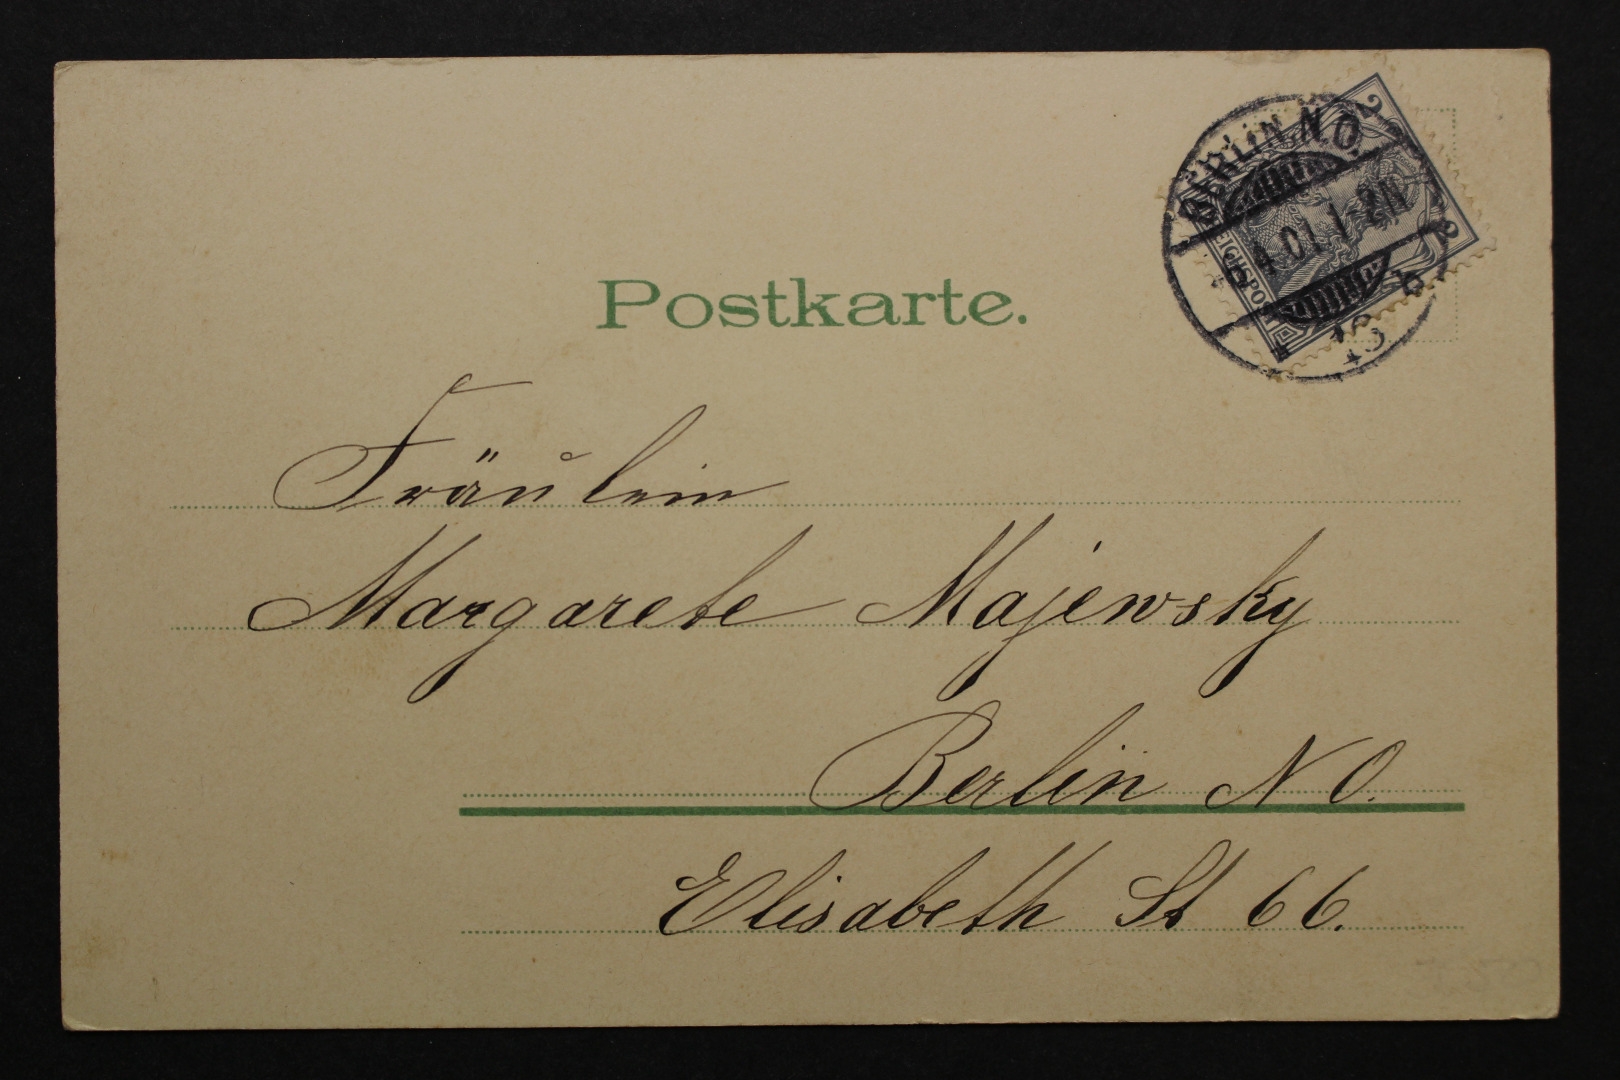 BERLIN N.O.
6.4.01.1-2N.
* 43 b
2
2
REICHSPOST
Postkarte.
Fräulein
Margarete Majewsky
Berlin NO.
Elisabeth St 66.